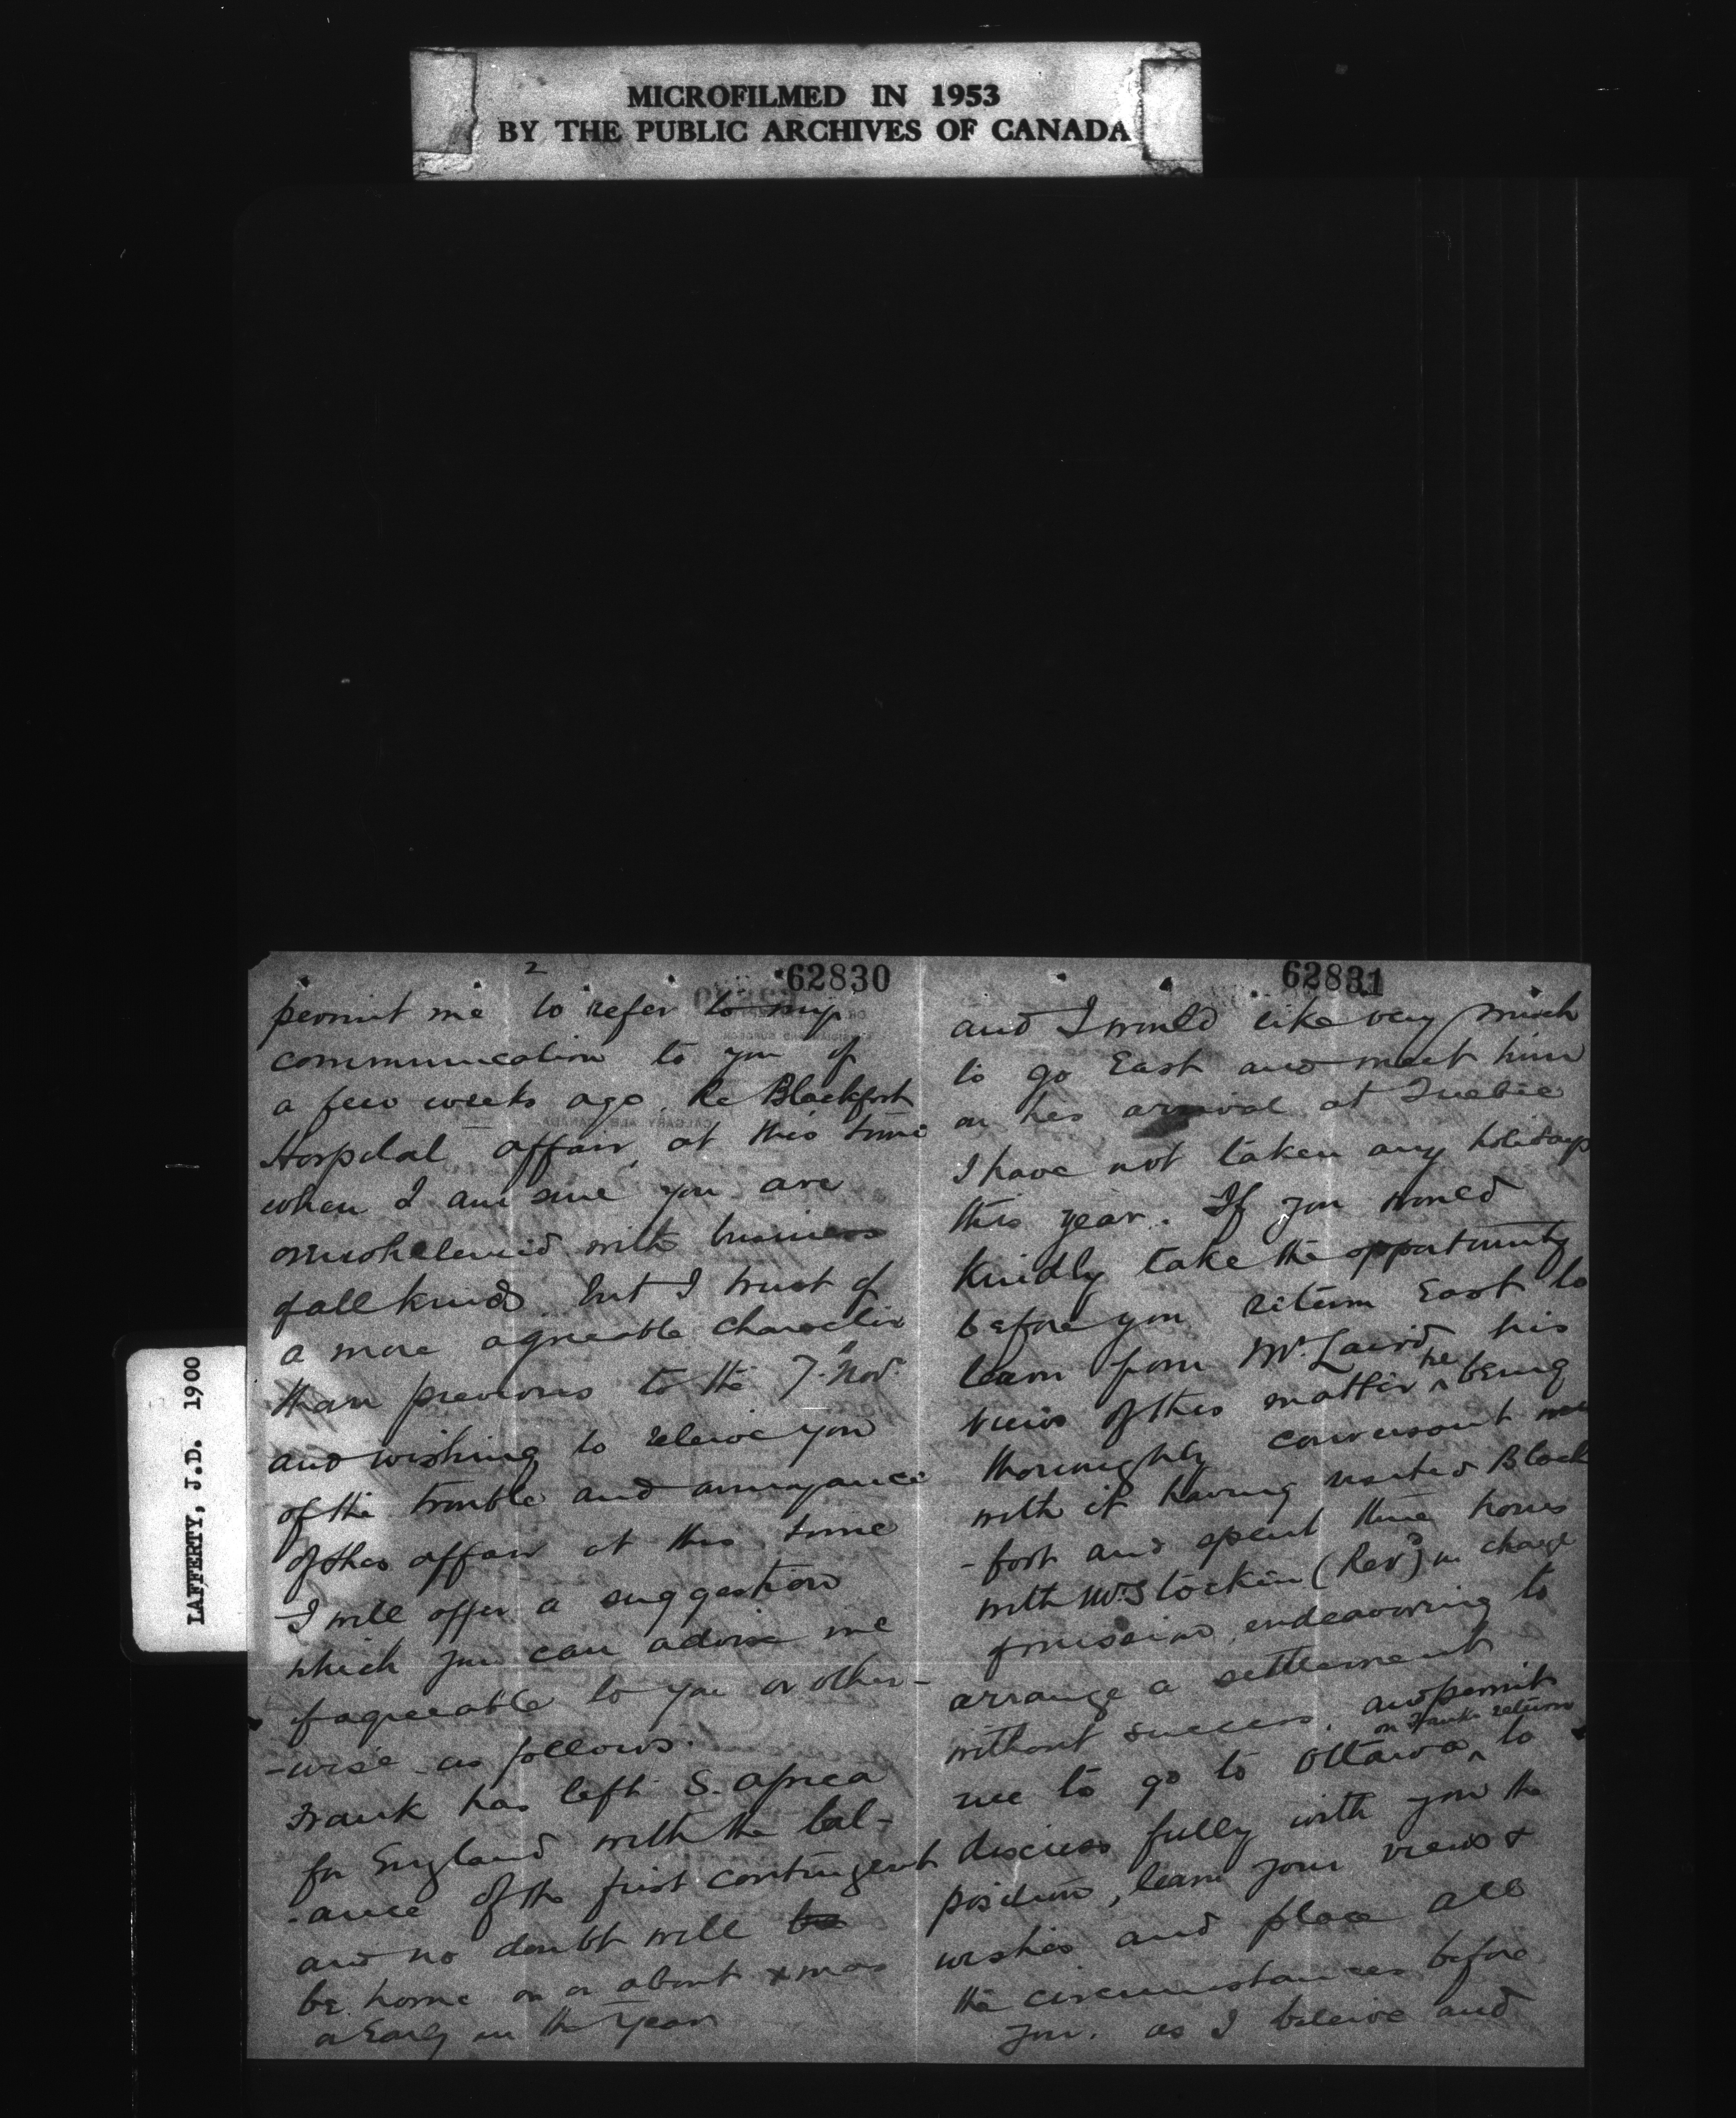 MICROFILMED IN 1953
BY THE PUBLIC ARCHIVES OF CANADA
LAFFERTY, J.D. 1900
2
62830
permit me to refer to my
communication to you of
a few weeks ago. Re Blackfoot
Hospital affair, at this time
when I am sure you are
overwhelmed with business
of all kinds. but I trust of
a more agreeable character
than previous to the 7th Nov.
and wishing to releive you
of the trouble and annoyance
of this affair at this time
I will offer a suggestion
which you can advise me
if agreeable to you or other-
-wise as follows.
Frank has left S. Africa
for England with the bal-
-ance of the first contingent
and no doubt will be
be home on or about xmas
or Early in the Year
62831
and I would like very much
to go East and meet him
on his arrival at Quebec
I have not taken any holidays
this year. If you would
Kindly take the opportunity
before you return East to
learn from Mr. Laird his
views of this matter he being
thoroughly conversant
with it having visited Black
-foot and spent three hours
with Mr. Stocken (Revd) in charge
of mission, endeavouring to
arrange a settlement
without success. and permit
me to go to Ottawa on Franks return to
discuss fully with you the
position, learn your views &
wishes and place all
the circumstances before
you. as I beleive and